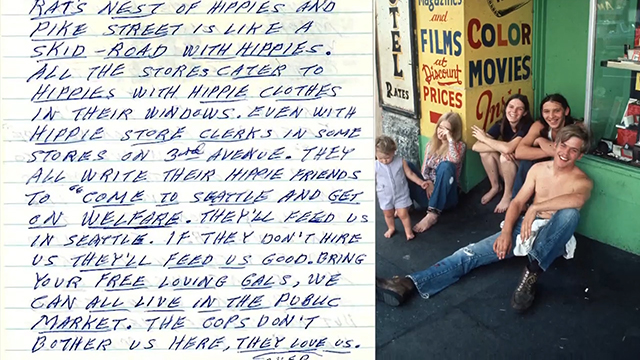 RAT'S NEST OF HIPPIES AND
PIKE STREET IS LIKE A
SKID-ROAD WITH HIPPIES.
ALL THE STORES CATER TO
HIPPIES WITH HIPPIE CLOTHES
IN THEIR WINDOWS. EVEN WITH
HIPPIE STORE CLERKS IN SOME
STORES ON 3rd AVENUE. THEY
ALL WRITE THEIR HIPPIE FRIENDS
TO "COME TO SEATTLE AND GET
ON WELFARE. THEY'LL FEED US
IN SEATTLE. IF THEY DON'T HIRE
US THEY'LL FEED US GOOD. BRING
YOUR FREE LOVING GALS, WE
CAN ALL LIVE IN THE PUBLIC
MARKET. THE COPS DON'T
BOTHER US HERE, THEY LOVE US.
RATES
Magazines
and
FILMS
at
Discount
PRICES
COLOR
MOVIES